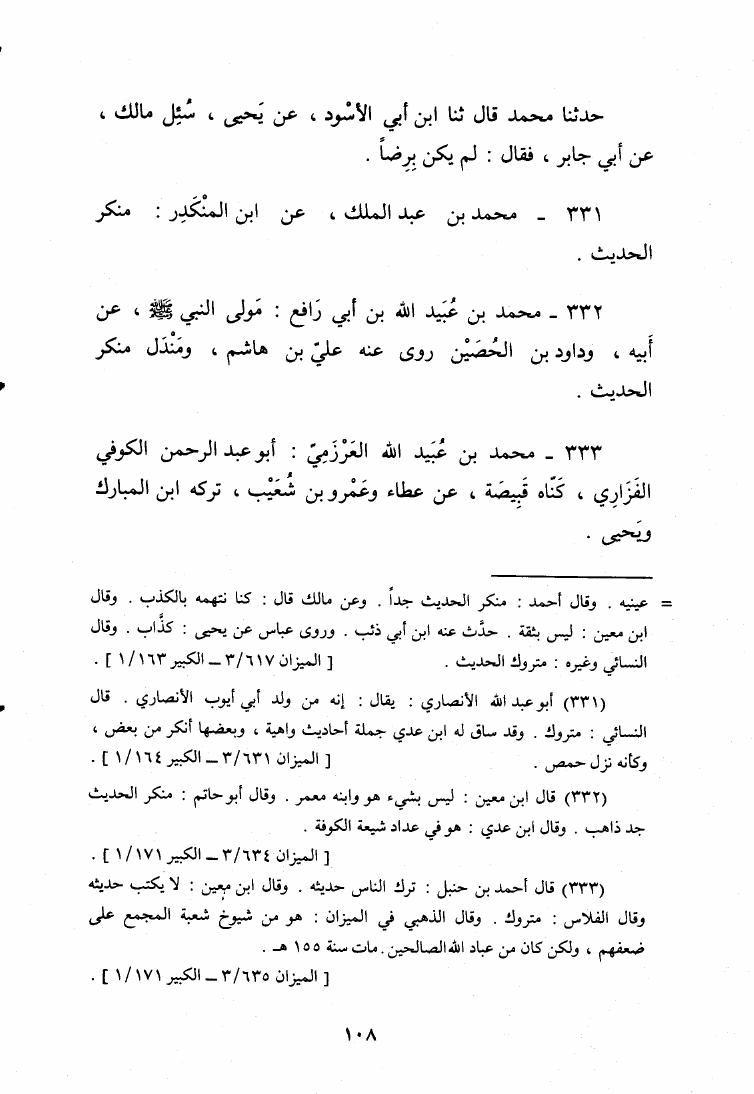 حدثنا محمد قال ثنا ابن أبي الأسْود ، عن يَحيى ، سُئِل مالك ،
عن أبي جابر ، فقال : لم يكن بِرِضاً .
٣٣١ ـ محمد بن عبد الملك ، عن ابن المنْكَدِر : منكر
الحديث .
٣٣٢ ـ محمد بن عُبَيد الله بن أبي رَافع : مَولى النبي ﷺ ، عن
أَبيه ، وداود بن الحُصَيْن روى عنه عليّ بن هاشم ، ومَنْدَل منكر
الحديث .
٣٣٣ ـ محمد بن عُبَيد الله العَرْزَمِيّ : أبو عبد الرحمن الكوفي
الفَزَارِي ، كَنّاه قَبِيصَة ، عن عطاء وعَمْرو بن شُعَيْب ، تركه ابن المبارك
ويَحيى .
= عينيه . وقال أحمد : منكر الحديث جداً . وعن مالك قال : كنا نتهمه بالكذب . وقال
ابن معين : ليس بثقة . حدَّث عنه ابن أبي ذئب . وروى عباس عن يحيى : كذَّاب . وقال
النسائي وغيره : متروك الحديث . [ الميزان ٣/٦١٧ ـ الكبير ١/١٦٣ ] .
(٣٣١) أبو عبد الله الأنصاري : يقال : إنه من ولد أبي أيوب الأنصاري . قال
النسائي : متروك . وقد ساق له ابن عدي جملة أحاديث واهية ، وبعضها أنكر من بعض ،
وكأنه نزل حمص . [ الميزان ٣/٦٣١ ـ الكبير ١/١٦٤ ] .
(٣٣٢) قال ابن معين : ليس بشيء هو وابنه معمر . وقال أبو حاتم : منكر الحديث
جد ذاهب . وقال ابن عدي : هو في عداد شيعة الكوفة .
[ الميزان ٣/٦٣٤ ـ الكبير ١/١٧١ ] .
(٣٣٣) قال أحمد بن حنبل : ترك الناس حديثه . وقال ابن معين : لا يكتب حديثه
وقال الفلاس : متروك . وقال الذهبي في الميزان : هو من شيوخ شعبة المجمع على
ضعفهم ، ولكن كان من عباد الله الصالحين . مات سنة ١٥٥ هـ .
[ الميزان ٣/٦٣٥ ـ الكبير ١/١٧١ ] .
١٠٨